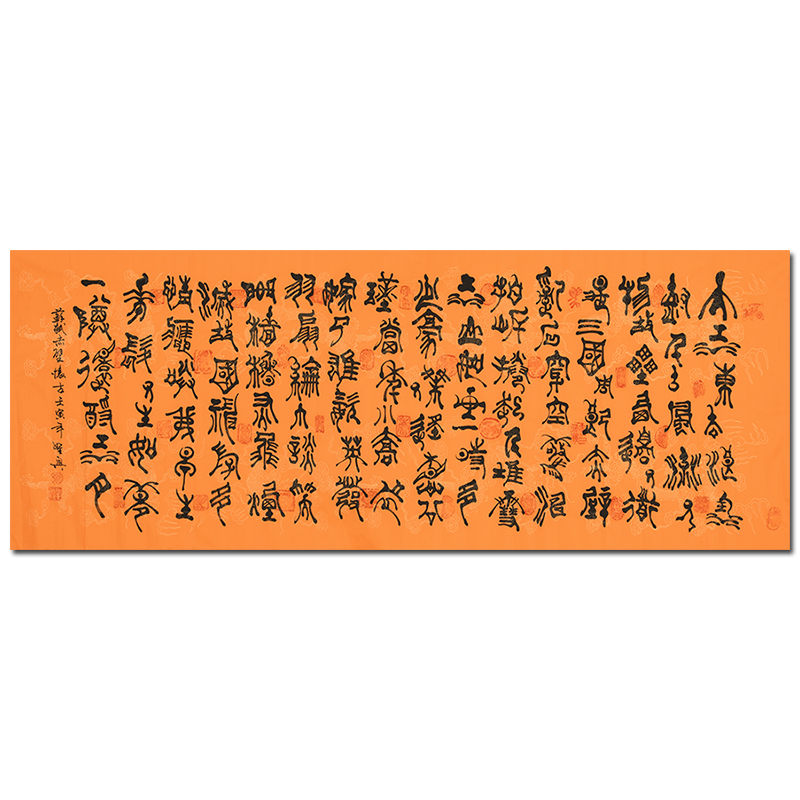 大江東去浪淘
盡千古風流人
物故壘西邊人道
是三國周郎赤壁
亂石穿空驚濤
拍岸捲起千堆雪
江山如畫一時多
少豪傑遙想公
瑾當年小喬初
嫁了雄姿英發
羽扇綸巾談笑
間檣櫓灰飛煙
滅故國神遊多
情應笑我早生
華髮人生如夢
一樽還酹江月
蘇軾赤壁懷古壬寅年